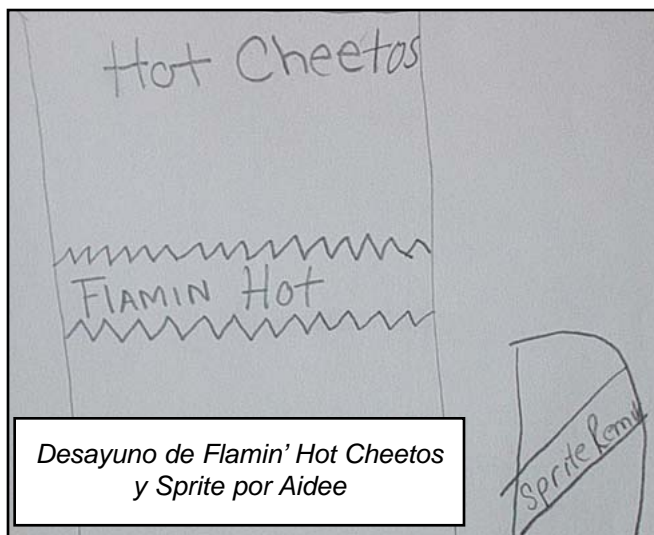 Hot Cheetos
FLAMIN Hot
Sprite
Desayuno de Flamin’ Hot Cheetos
y Sprite por Aidee